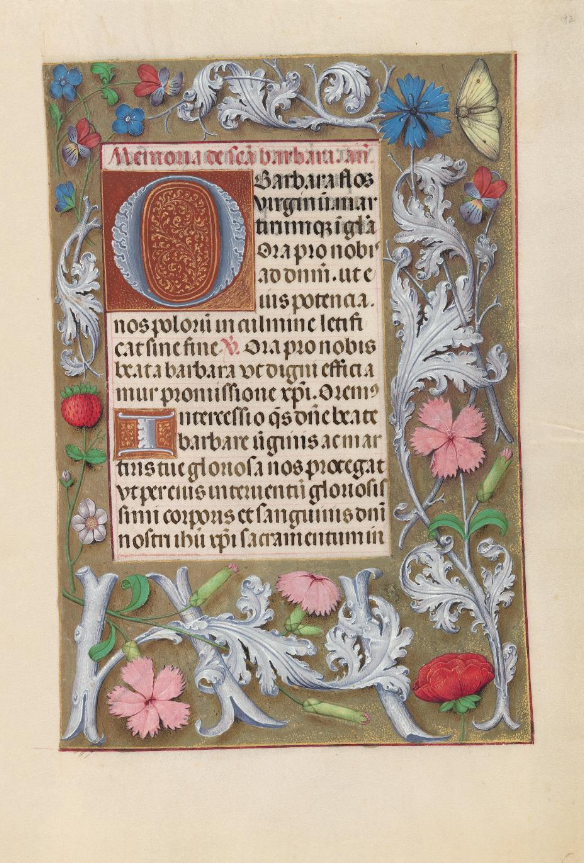 Memoria de scā barbara an̄.
O Barbara flos
virginū mar
tirumqȝ ī glā
Ora pro nobis
ad dnm̄. ut e
iuis potencia.
nos polorū in culmine letifi
cat sine fine ℣. Ora pro nobis
beata barbara vt digni efficia
mur promissione xp̄i. Oremꝰ
Intercessio q̄s dn̄e beate
barbare v̄ginis ac mar
tiris tue gloriosa nos protegat
vt per eius interuentū gloriosis
simi corporis et sanguinis dn̄i
nostri ihū xp̄i sacramentum in